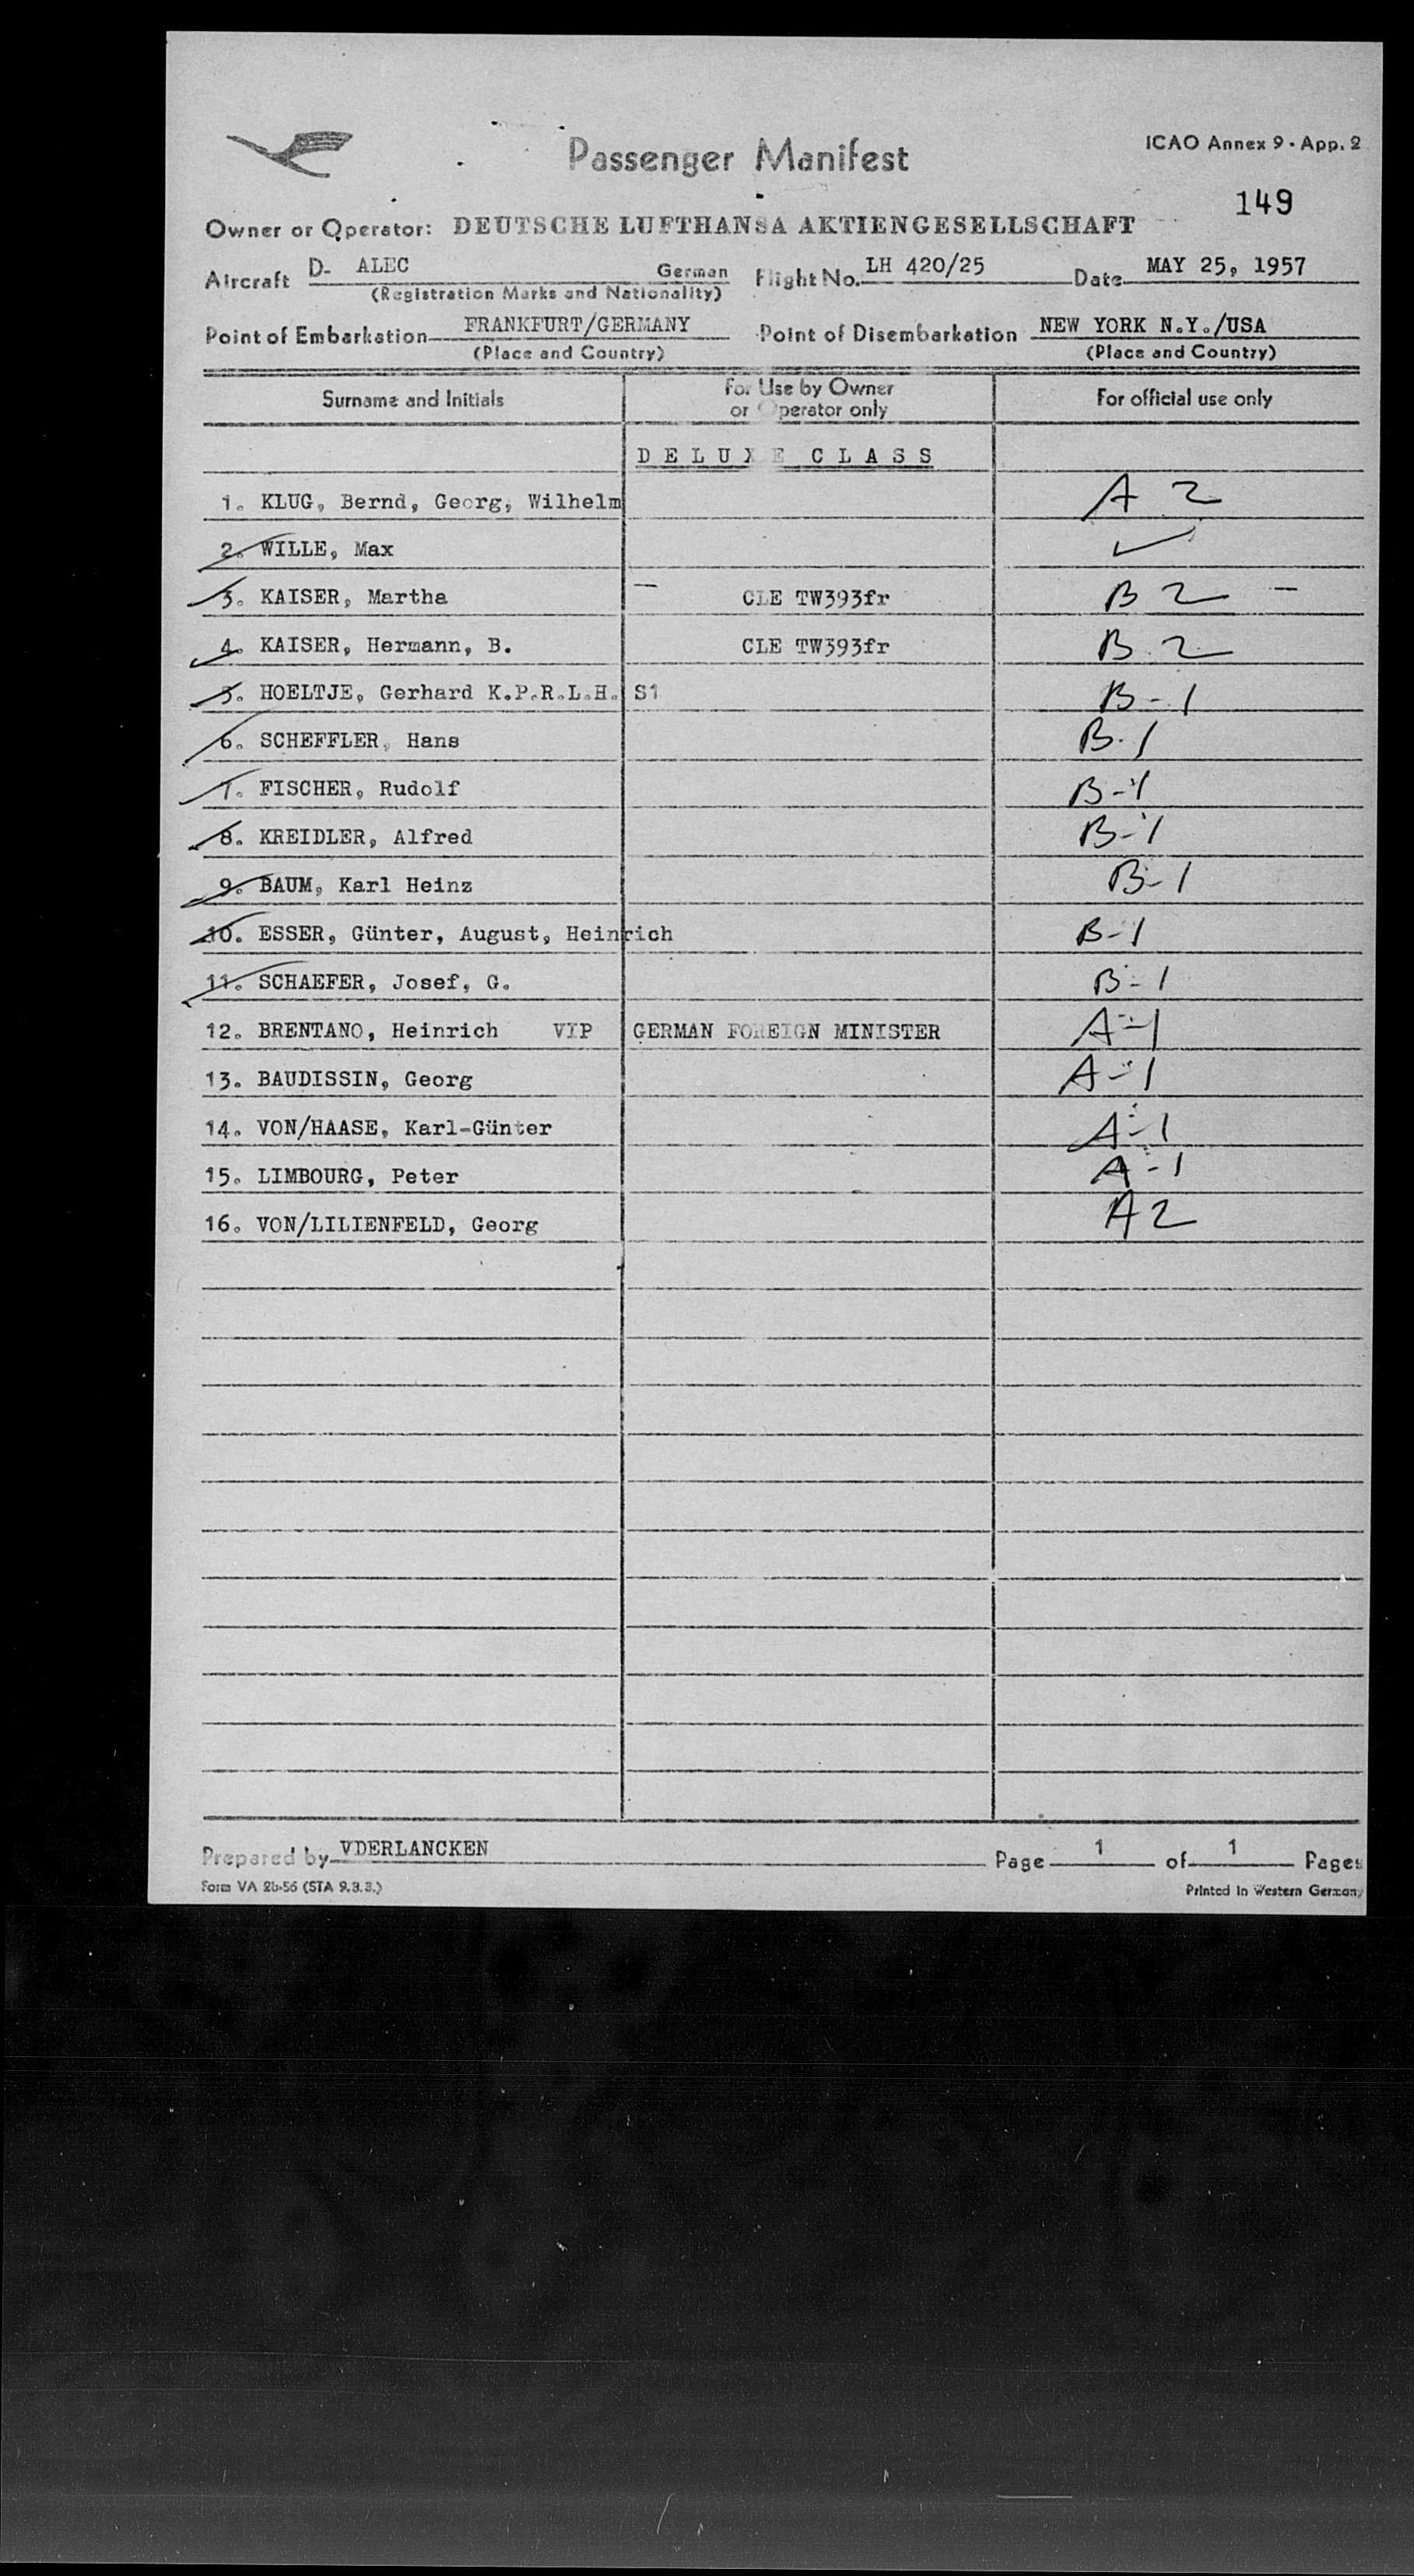 Passenger Manifest
ICAO Annex 9 - App. 2
149
Owner or Operator: DEUTSCHE LUFTHANSA AKTIENGESELLSCHAFT
Aircraft D- ALEC German Flight No. LH 420/25 Date MAY 25, 1957
(Registration Marks and Nationality)
Point of Embarkation FRANKFURT/GERMANY Point of Disembarkation NEW YORK N.Y./USA
(Place and Country) (Place and Country)
Surname and Initials For Use by Owner or Operator only For official use only
DELUXE CLASS
1. KLUG, Bernd, Georg, Wilhelm A 2
2. WILLE, Max ✓
3. KAISER, Martha — CLE TW393fr B 2 —
4. KAISER, Hermann, B. CLE TW393fr B 2
5. HOELTJE, Gerhard K.P.R.L.H. S1 B-1
6. SCHEFFLER, Hans B-1
7. FISCHER, Rudolf B-1
8. KREIDLER, Alfred B-1
9. BAUM, Karl Heinz B-1
10. ESSER, Günter, August, Heinrich B-1
11. SCHAEFER, Josef, G. B-1
12. BRENTANO, Heinrich VIP GERMAN FOREIGN MINISTER A-1
13. BAUDISSIN, Georg A-1
14. VON/HAASE, Karl-Günter A-1
15. LIMBOURG, Peter A-1
16. VON/LILIENFELD, Georg A2
Prepared by VDERLANCKEN Page 1 of 1 Pages
Form VA 2b-56 (STA 9.3.3.) Printed in Western Germany